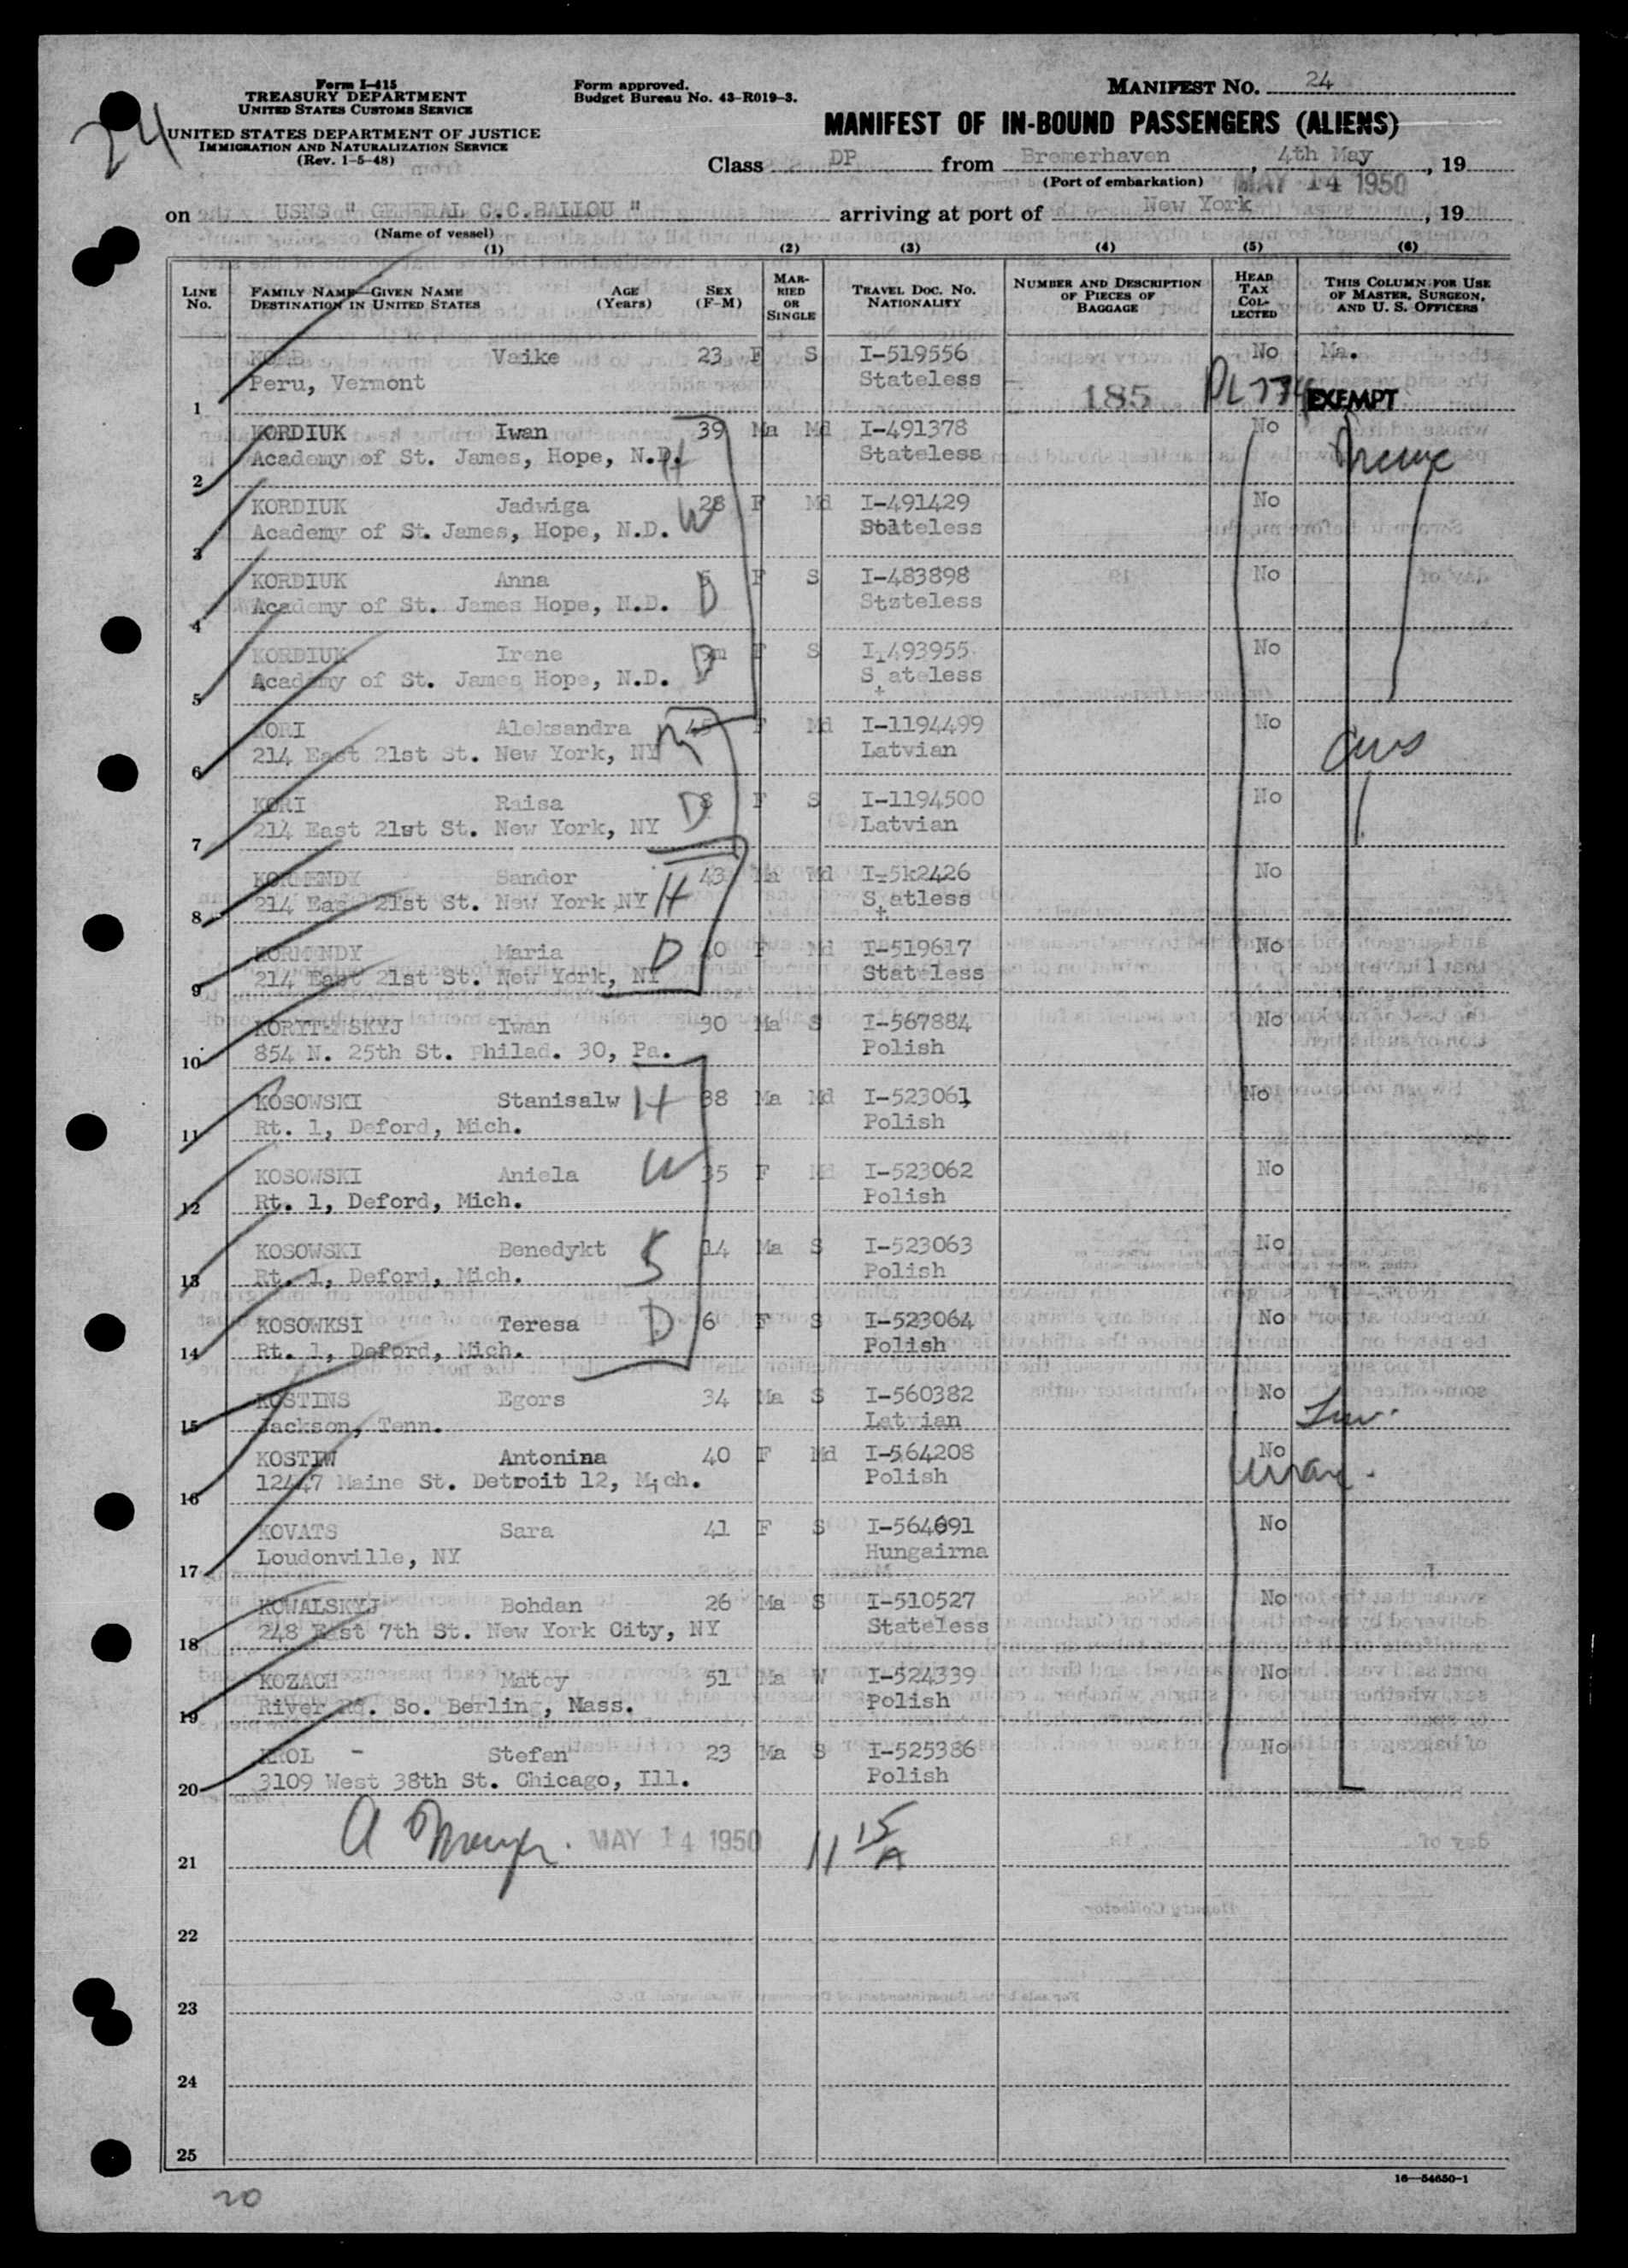 Form I-415
TREASURY DEPARTMENT
UNITED STATES CUSTOMS SERVICE
UNITED STATES DEPARTMENT OF JUSTICE
IMMIGRATION AND NATURALIZATION SERVICE
(Rev. 1-5-48)
24
Form approved.
Budget Bureau No. 43-R019-3.
MANIFEST NO. 24
MANIFEST OF IN-BOUND PASSENGERS (ALIENS)
Class DP from Bremerhaven, 4th May, 19
(Port of embarkation) MAY 14 1950
on USNS " GENERAL C.C.BALLOU " arriving at port of New York, 19
(Name of vessel)
(1) (2) (3) (4) (5) (6)
LINE No. FAMILY NAME—GIVEN NAME DESTINATION IN UNITED STATES AGE (Years) SEX (F-M) MARRIED OR SINGLE TRAVEL DOC. NO. NATIONALITY NUMBER AND DESCRIPTION OF PIECES OF BAGGAGE HEAD TAX COLLECTED THIS COLUMN FOR USE OF MASTER, SURGEON, AND U. S. OFFICERS
Vaike 23 F S I-519556 No Ma.
1 Peru, Vermont Stateless 185 PL 774 EXEMPT
KORDIUK Iwan 39 Ma Md I-491378 No
2 Academy of St. James, Hope, N.D. H Stateless
KORDIUK Jadwiga 28 F Md I-491429 No
3 Academy of St. James, Hope, N.D. W Stateless
KORDIUK Anna 5 F S I-483898 No
4 Academy of St. James Hope, N.D. D Stzteless
KORDIUK Irene F S I-493955 No
5 Academy of St. James Hope, N.D. D Stateless
KORI Aleksandra 45 F Md I-1194499 No
6 214 East 21st St. New York, NY M Latvian
KORI Raisa 8 F S I-1194500 No
7 214 East 21st St. New York, NY D Latvian
KORMENDY Sandor 43 Ma Md I-5k2426 No
8 214 East 21st St. New York NY H Statless
KORMENDY Maria 40 F Md I-519617 No
9 214 East 21st St. New York, NY D Stateless
KORYTENSKYJ Iwan 30 Ma S I-567884 No
10 854 N. 25th St. Philad. 30, Pa. Polish
KOSOWSKI Stanisalw H 38 Ma Md I-523061 No
11 Rt. 1, Deford, Mich. Polish
KOSOWSKI Aniela W 35 F Md I-523062 No
12 Rt. 1, Deford, Mich. Polish
KOSOWSKI Benedykt S 14 Ma S I-523063 No
13 Rt. 1, Deford, Mich. Polish
KOSOWKSI Teresa D 6 F S I-523064 No
14 Rt. 1, Deford, Mich. Polish
KOSTINS Egors 34 Ma S I-560382 No
15 Jackson, Tenn. Latvian
KOSTIW Antonina 40 F Md I-564208 No
16 12447 Maine St. Detroit 12, Mich. Polish
KOVATS Sara 41 F S I-564691 No
17 Loudonville, NY Hungairna
KOWALSKYJ Bohdan 26 Ma S I-510527 No
18 248 East 7th St. New York City, NY Stateless
KOZACH Matey 51 Ma W I-524339 No
19 River Rd. So. Berling, Mass. Polish
KROL - Stefan 23 Ma S I-525386 No
20 3109 West 38th St. Chicago, Ill. Polish
21 MAY 14 1950 11 15 A
22
23
24
25
16—54650-1
20